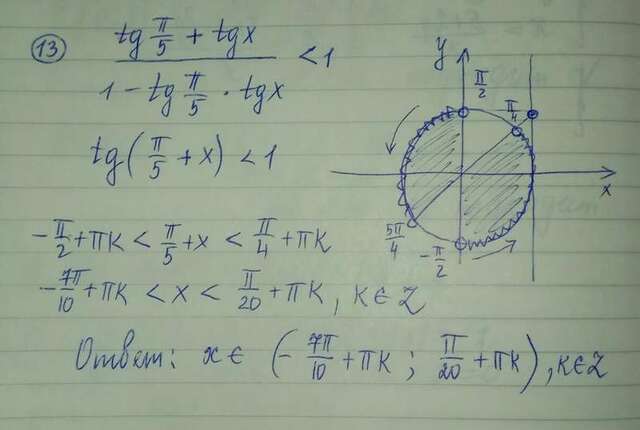 13
(tg π/5 + tgx) / (1 - tg π/5 · tgx) < 1
tg(π/5 + x) < 1
-π/2 + πk < π/5 + x < π/4 + πk
-7π/10 + πk < x < π/20 + πk, k∈Z
Ответ: x∈ (-7π/10 + πk ; π/20 + πk), k∈Z
y
π/2
π/4
x
5π/4
-π/2